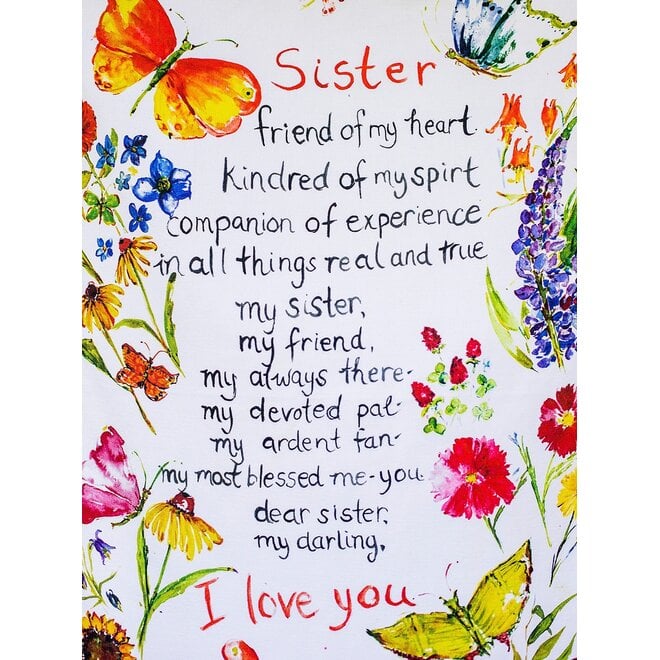 Sister
friend of my heart.
Kindred of my spirt
companion of experience
in all things real and true
my sister,
my friend,
my always there-
my devoted pal-
my ardent fan-
my most blessed me-you
dear sister,
my darling,
I love you